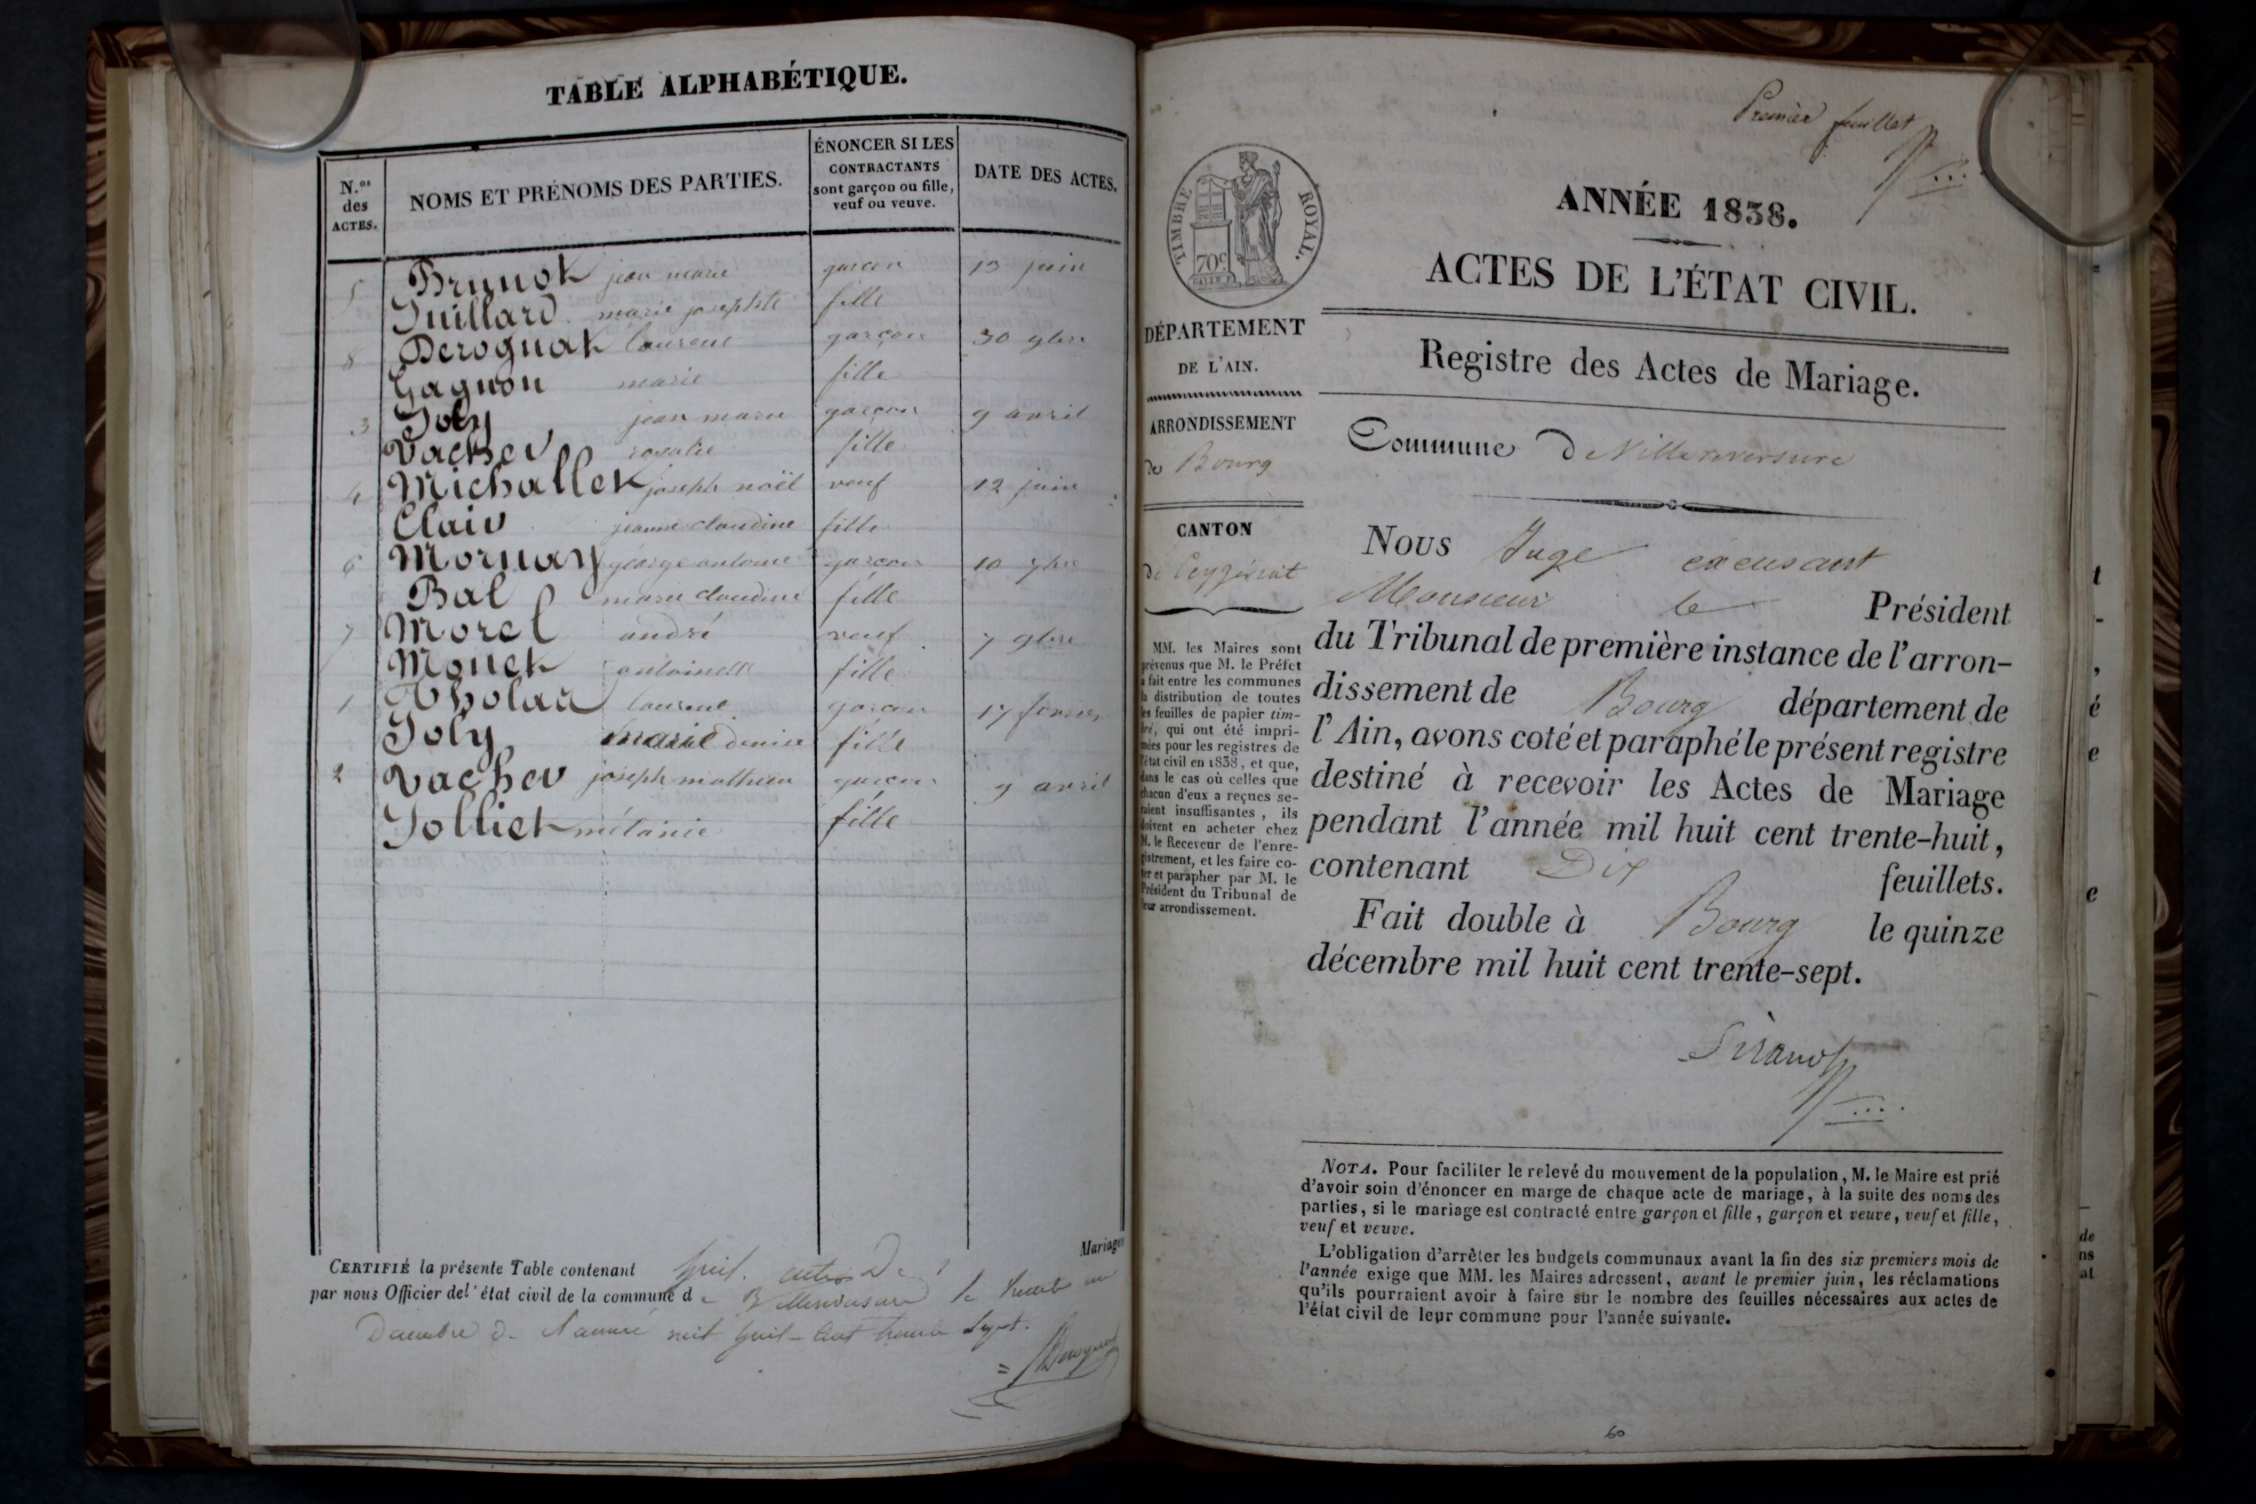 TABLE ALPHABÉTIQUE.
N.os des ACTES.
NOMS ET PRÉNOMS DES PARTIES.
ÉNONCER SI LES
CONTRACTANTS
sont garçon ou fille,
veuf ou veuve.
DATE DES ACTES.
5 Brunot jean marie garçon 13 juin
Juillard marie josephte fille
8 Derognat laurent garçon 30 9bre
Gagnon marie fille
3 Joly jean marie garçon 9 avril
Vacher rosalie fille
4 Michallet joseph noël veuf 12 juin
Clair jeanne claudine fille
6 Mornay george antoine garçon 10
Bal marie claudine fille
7 Morel andré veuf 7 9bre
Monet antoinette fille
1 laurent garçon 17 février
Joly marie denise fille
2 Vacher joseph mathieu garçon 9 avril
Jolliet mélanie fille
Mariages
CERTIFIÉ la présente Table contenant huit actes De
par nous Officier de l'état civil de la commune de Villereversure le trente un
Decembre de l'année mil huit cent trente Sept.
Premier feuillet
TIMBRE ROYAL.
70c
ANNÉE 1838.
ACTES DE L'ÉTAT CIVIL.
Registre des Actes de Mariage.
Commune De Villereversure
DÉPARTEMENT
DE L'AIN.
ARRONDISSEMENT
de Bourg
CANTON
de Ceyzériat
MM. les Maires sont
prévenus que M. le Préfet
a fait entre les communes
la distribution de toutes
les feuilles de papier tim-
bré, qui ont été impri-
mées pour les registres de
l'état civil en 1838, et que,
dans le cas où celles que
chacun d'eux a reçues se-
raient insuffisantes, ils
doivent en acheter chez
M. le Receveur de l'enre-
gistrement, et les faire co-
ter et parapher par M. le
Président du Tribunal de
leur arrondissement.
Nous Juge excusant
Monsieur le Président
du Tribunal de première instance de l'arron-
dissement de Bourg département de
l'Ain, avons coté et paraphé le présent registre
destiné à recevoir les Actes de Mariage
pendant l'année mil huit cent trente-huit,
contenant Dix feuillets.
Fait double à Bourg le quinze
décembre mil huit cent trente-sept.
NOTA. Pour faciliter le relevé du mouvement de la population, M. le Maire est prié
d'avoir soin d'énoncer en marge de chaque acte de mariage, à la suite des noms des
parties, si le mariage est contracté entre garçon et fille, garçon et veuve, veuf et fille,
veuf et veuve.
L'obligation d'arrêter les budgets communaux avant la fin des six premiers mois de
l'année exige que MM. les Maires adressent, avant le premier juin, les réclamations
qu'ils pourraient avoir à faire sur le nombre des feuilles nécessaires aux actes de
l'état civil de leur commune pour l'année suivante.
60